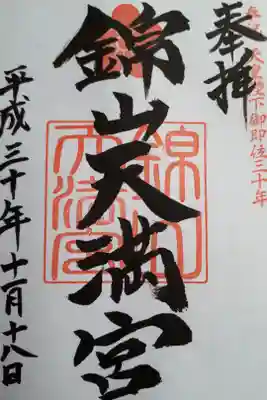 天皇陛下御即位三十年
奉拝
錦山天満宮
平成三十年十一月十八日